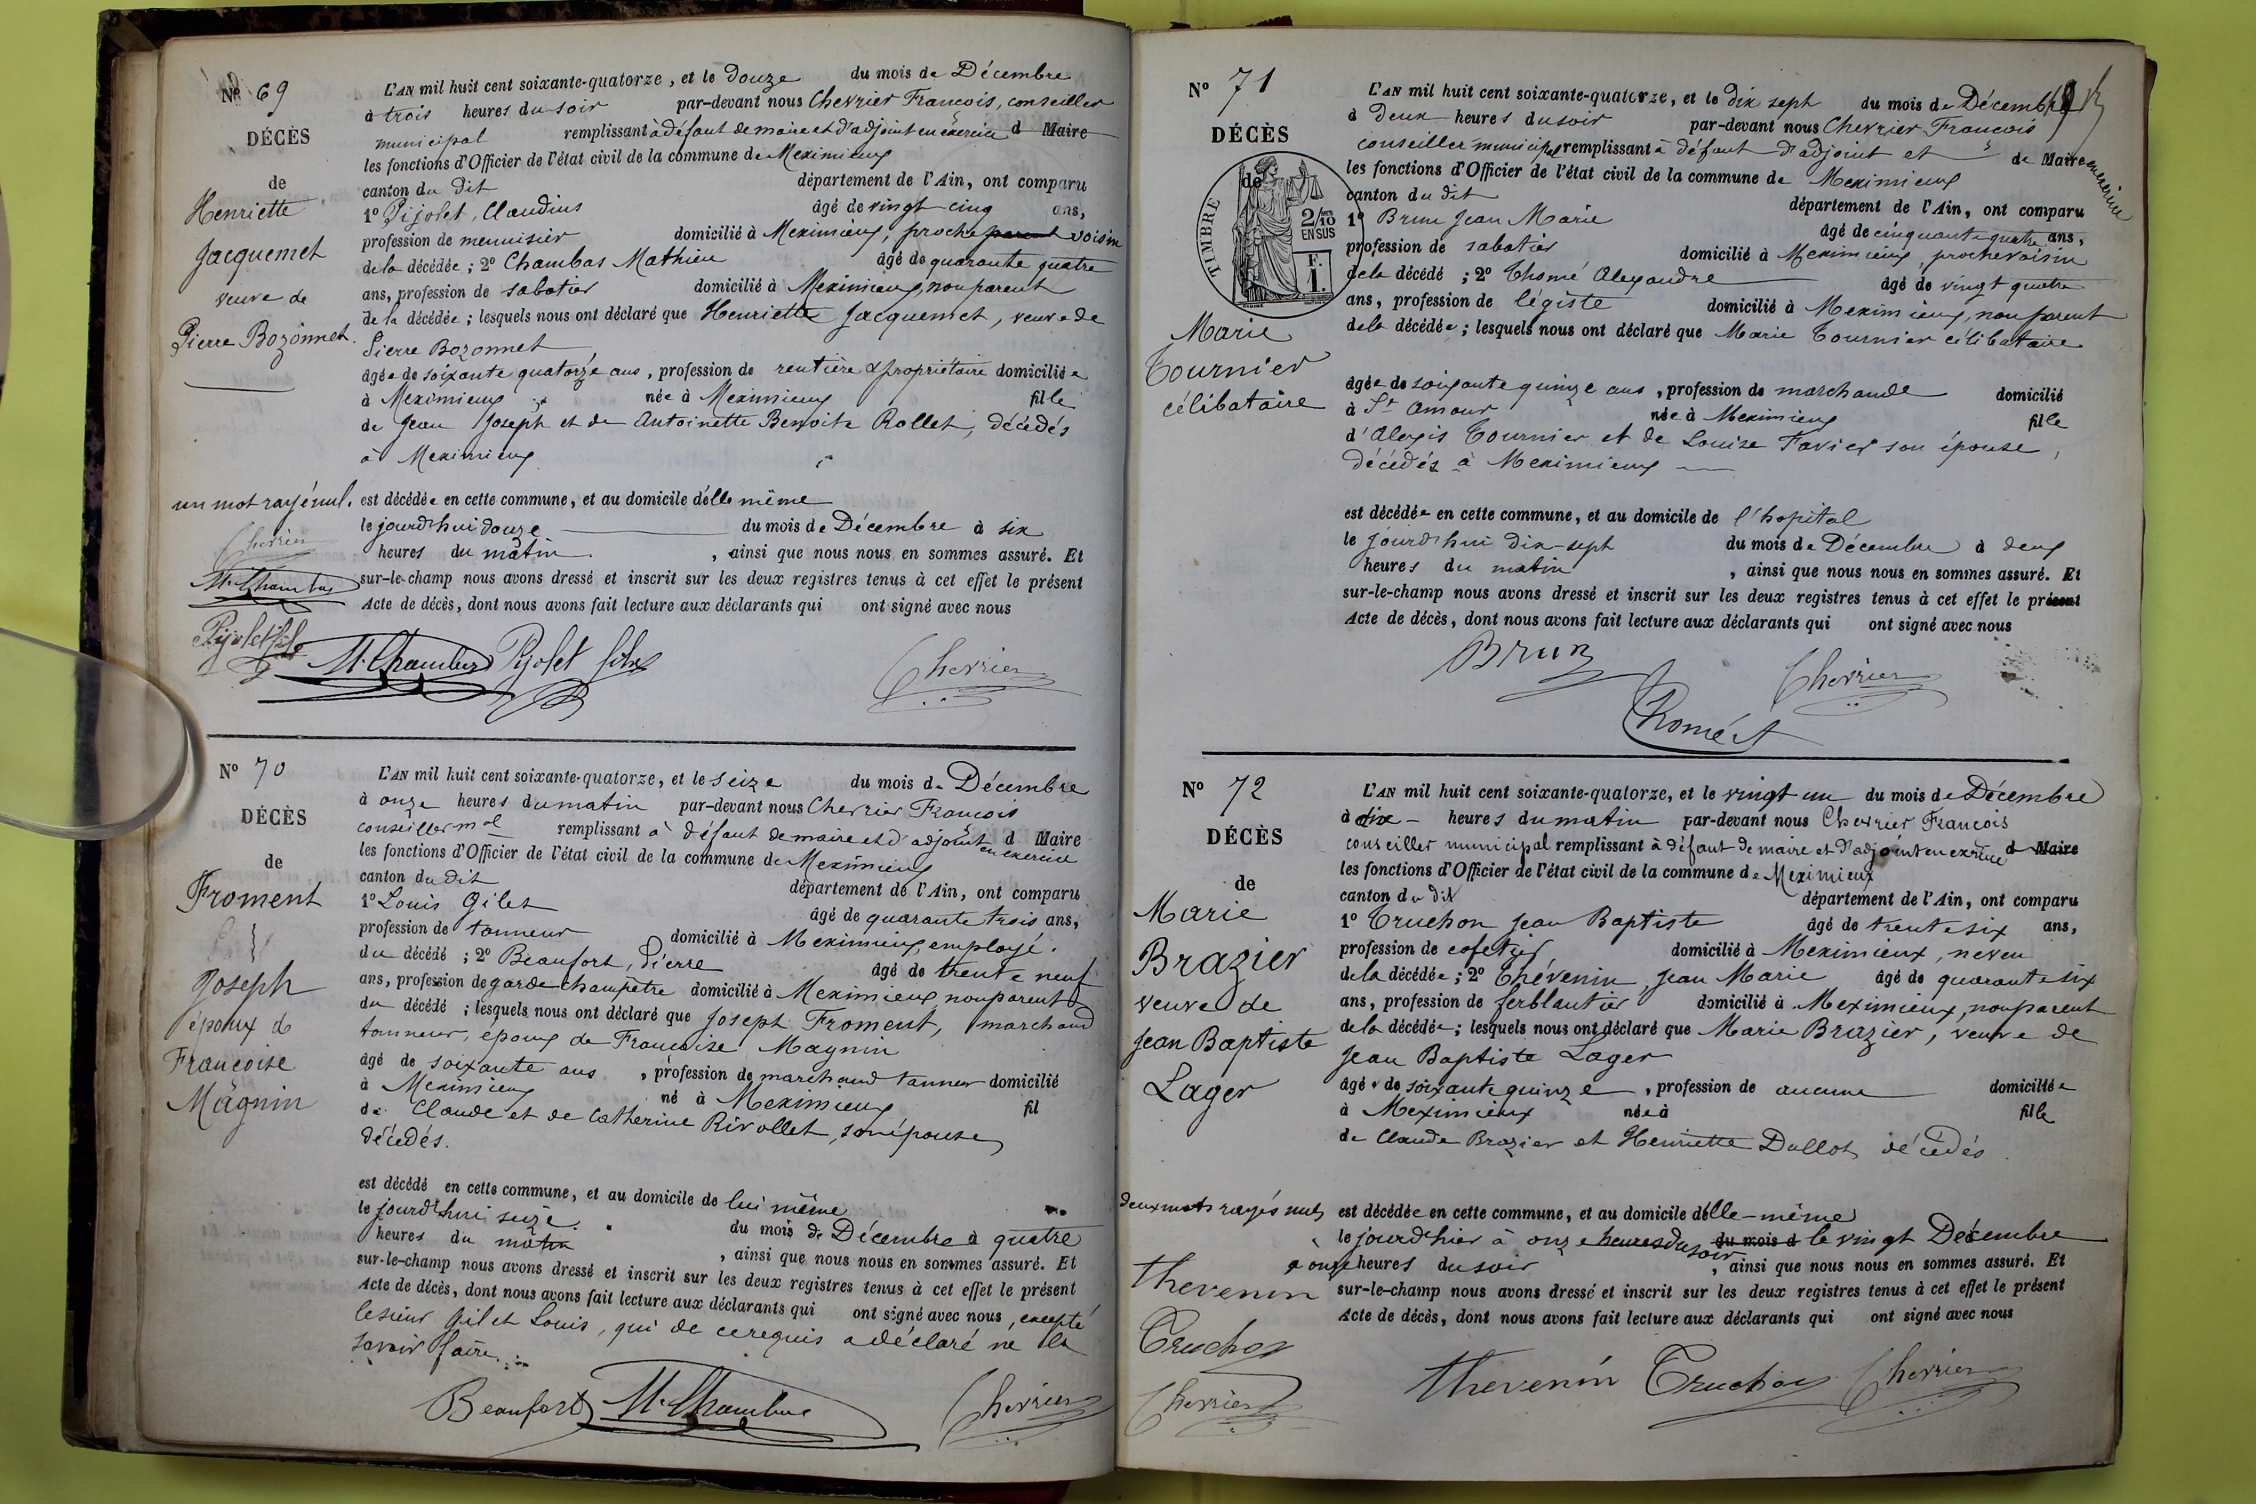 Nº 69
DÉCÈS
de
Henriette
Jacquemet
veuve de
Pierre Bozonnet.
un mot rayé nul.
Chevrier
M. Chambas
Pijolet fils
L'AN mil huit cent soixante-quatorze, et le douze du mois de Décembre
à trois heures du soir par-devant nous Chevrier François, conseiller
municipal remplissant à défaut de maire et d'adjoint en exercice d Maire
les fonctions d'Officier de l'état civil de la commune de Meximieux
canton du dit département de l'Ain, ont comparu
1º Pijolet, Claudius âgé de vingt cinq ans,
profession de menuisier domicilié à Meximieux, proche parent voisin
de la décédée ; 2º Chambas Mathieu âgé de quarante quatre
ans, profession de sabotier domicilié à Meximieux, non parent
de la décédée ; lesquels nous ont déclaré que Henriette Jacquemet, veuve de
Pierre Bozonnet
âgée de soixante quatorze ans, profession de rentière & propriétaire domiciliée
à Meximieux née à Meximieux fille
de Jean Joseph et de Antoinette Benoite Rollet, décédés
à Meximieux
est décédée en cette commune, et au domicile d'elle même
le jourd'hui douze du mois de Décembre à six
heures du matin, ainsi que nous nous en sommes assuré. Et
sur-le-champ nous avons dressé et inscrit sur les deux registres tenus à cet effet le présent
Acte de décès, dont nous avons fait lecture aux déclarants qui ont signé avec nous
M. Chambas Pijolet fils Chevrier
Nº 70
DÉCÈS
de
Froment
Joseph
époux de
Françoise
Magnin
L'AN mil huit cent soixante-quatorze, et le seize du mois de Décembre
à onze heures du matin par-devant nous Chevrier François
conseiller mal remplissant à défaut de maire et d'adjoint en exercice d Maire
les fonctions d'Officier de l'état civil de la commune de Meximieux
canton du dit département de l'Ain, ont comparu
1º Louis Gilet âgé de quarante trois ans,
profession de tanneur domicilié à Meximieux, employé.
du décédé ; 2º Beaufort, Pierre âgé de trente neuf
ans, profession de garde champêtre domicilié à Meximieux, non parent
du décédé ; lesquels nous ont déclaré que Joseph Froment, marchand
tanneur, époux de Françoise Magnin
âgé de soixante ans, profession de marchand tanneur domicilié
à Meximieux né à Meximieux fil
de Claude et de Catherine Rivollet, son épouse,
décédés.
est décédé en cette commune, et au domicile de lui même
le jourd'hui seize. du mois de Décembre à quatre
heures du matin, ainsi que nous nous en sommes assuré. Et
sur-le-champ nous avons dressé et inscrit sur les deux registres tenus à cet effet le présent
Acte de décès, dont nous avons fait lecture aux déclarants qui ont signé avec nous, excepté
le sieur Gilet Louis, qui de ce requis a déclaré ne le
savoir faire.
Beaufort M. Chambas Chevrier
Nº 71
DÉCÈS
de
TIMBRE
2/10
EN SUS
F.
1.
Marie
Tournier
célibataire
L'AN mil huit cent soixante-quatorze, et le dix sept du mois de Décembre
à deux heures du soir par-devant nous Chevrier François
conseiller municipal remplissant à défaut d'adjoint et de Maire en exercice
les fonctions d'Officier de l'état civil de la commune de Meximieux
canton du dit département de l'Ain, ont comparu
1º Brun Jean Marie âgé de cinquante quatre ans,
profession de sabotier domicilié à Meximieux, proche voisin
de la décédé ; 2º Thomé Alexandre âgé de vingt quatre
ans, profession de légiste domicilié à Meximieux, non parent
de la décédée ; lesquels nous ont déclaré que Marie Tournier célibataire
âgée de soixante quinze ans, profession de marchande domicilié
à St Amour née à Meximieux fille
d'Alexis Tournier et de Louise Favier son épouse,
décédés à Meximieux
est décédée en cette commune, et au domicile de l'hopital
le jourd'hui dix-sept du mois de Décembre à deux
heures du matin, ainsi que nous nous en sommes assuré. Et
sur-le-champ nous avons dressé et inscrit sur les deux registres tenus à cet effet le présent
Acte de décès, dont nous avons fait lecture aux déclarants qui ont signé avec nous
Brun Chevrier
Thomé A
Nº 72
DÉCÈS
de
Marie
Brazier
veuve de
Jean Baptiste
Lager
deux mots rayés nuls
Thevenin
Truchon
Chevrier
L'AN mil huit cent soixante-quatorze, et le vingt un du mois de Décembre
à dix heures du matin par-devant nous Chevrier François
conseiller municipal remplissant à défaut de maire et d'adjoint en exercice d Maire
les fonctions d'Officier de l'état civil de la commune de Meximieux
canton du dit département de l'Ain, ont comparu
1º Truchon Jean Baptiste âgé de trente six ans,
profession de cafetier domicilié à Meximieux, neveu
de la décédée ; 2º Thévenin, Jean Marie âgé de quarante six
ans, profession de ferblantier domicilié à Meximieux, non parent
de la décédée ; lesquels nous ont déclaré que Marie Brazier, veuve de
Jean Baptiste Lager
âgée de soixante quinze, profession de aucune domiciliée
à Meximieux née à fille
de Claude Brazier et Henriette Dallot, décédés
est décédée en cette commune, et au domicile d'elle-même
le jourd'hier à onze heures du soir du mois d le vingt Décembre
à onze heures du soir, ainsi que nous nous en sommes assuré. Et
sur-le-champ nous avons dressé et inscrit sur les deux registres tenus à cet effet le présent
Acte de décès, dont nous avons fait lecture aux déclarants qui ont signé avec nous
Thevenin Truchon Chevrier